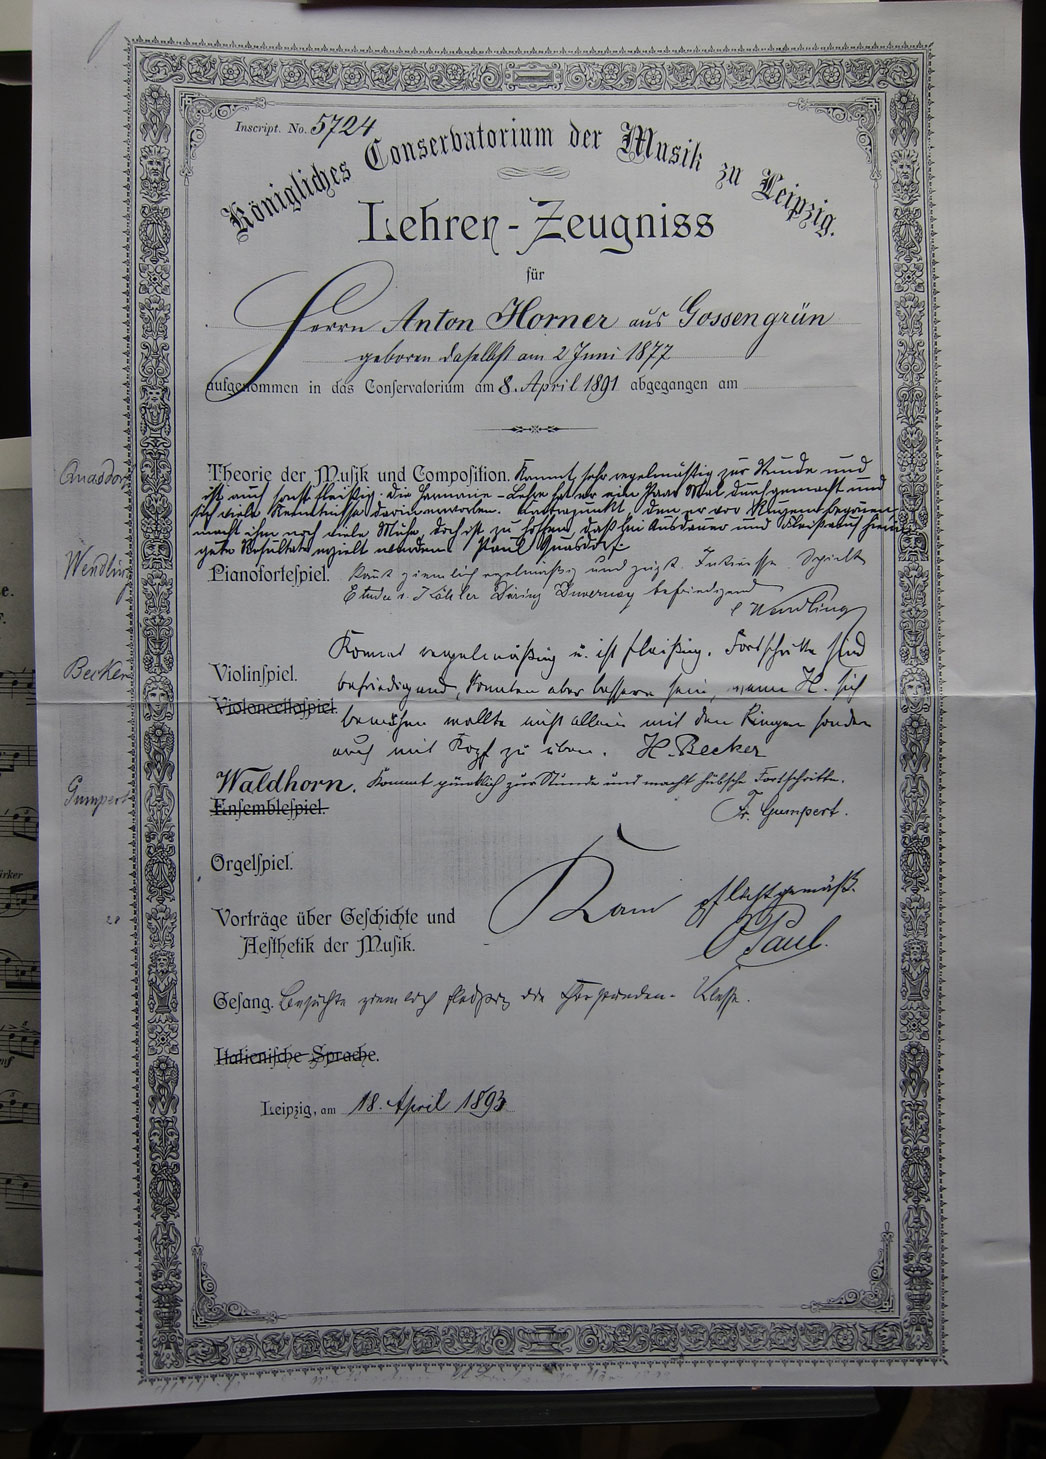 Inscript. No. 5724
Königliches Conservatorium der Musik zu Leipzig.
Lehrer-Zeugniss
für
Herrn Anton Horner aus Gossengrün
geboren daselbst am 2 Juni 1877
aufgenommen in das Conservatorium am 8. April 1891 abgegangen am
Quasdorf
Theorie der Musik und Composition. Kommt sehr regelmäßig zur Stunde und
ist auch sonst fleißig. die Harmonie-Lehre hat er ein Paar Mal durchgemacht und
sich viele Kenntnisse darin erworben. Contrapunkt, den er vor begonnen
macht ihm noch viele Mühe doch ist zu hoffen, daß bei Ausdauer und Fleiß auch hierin
gute Resultate erzielt werden. Paul Quasdorf
Wendling
Pianofortespiel. Kommt ziemlich regelmäßig und zeigt Interesse. Spielte
Etuden v. Köhler Döring Duvernoy befriedigend
C Wendling
Becker
Violinspiel. Kommt regelmäßig u. ist fleißig. Fortschritte sind
Violoncellospiel. befriedigend, könnten aber besser sein, wenn H. sich
bemühen wollte nicht allein mit den Fingern sondern
auch mit Kopf zu üben. H. Becker
Waldhorn. Kommt pünktlich zur Stunde und macht hübsche Fortschritte.
Gumpert
Ensemblespiel. Fr. Gumpert.
Orgelspiel.
Vorträge über Geschichte und Kam pflichtgemäß.
Aesthetik der Musik. O Paul.
Gesang. Besuchte ziemlich fleißig die Chorstunden-Klasse.
Italienische Sprache.
Leipzig, am 18. April 1893